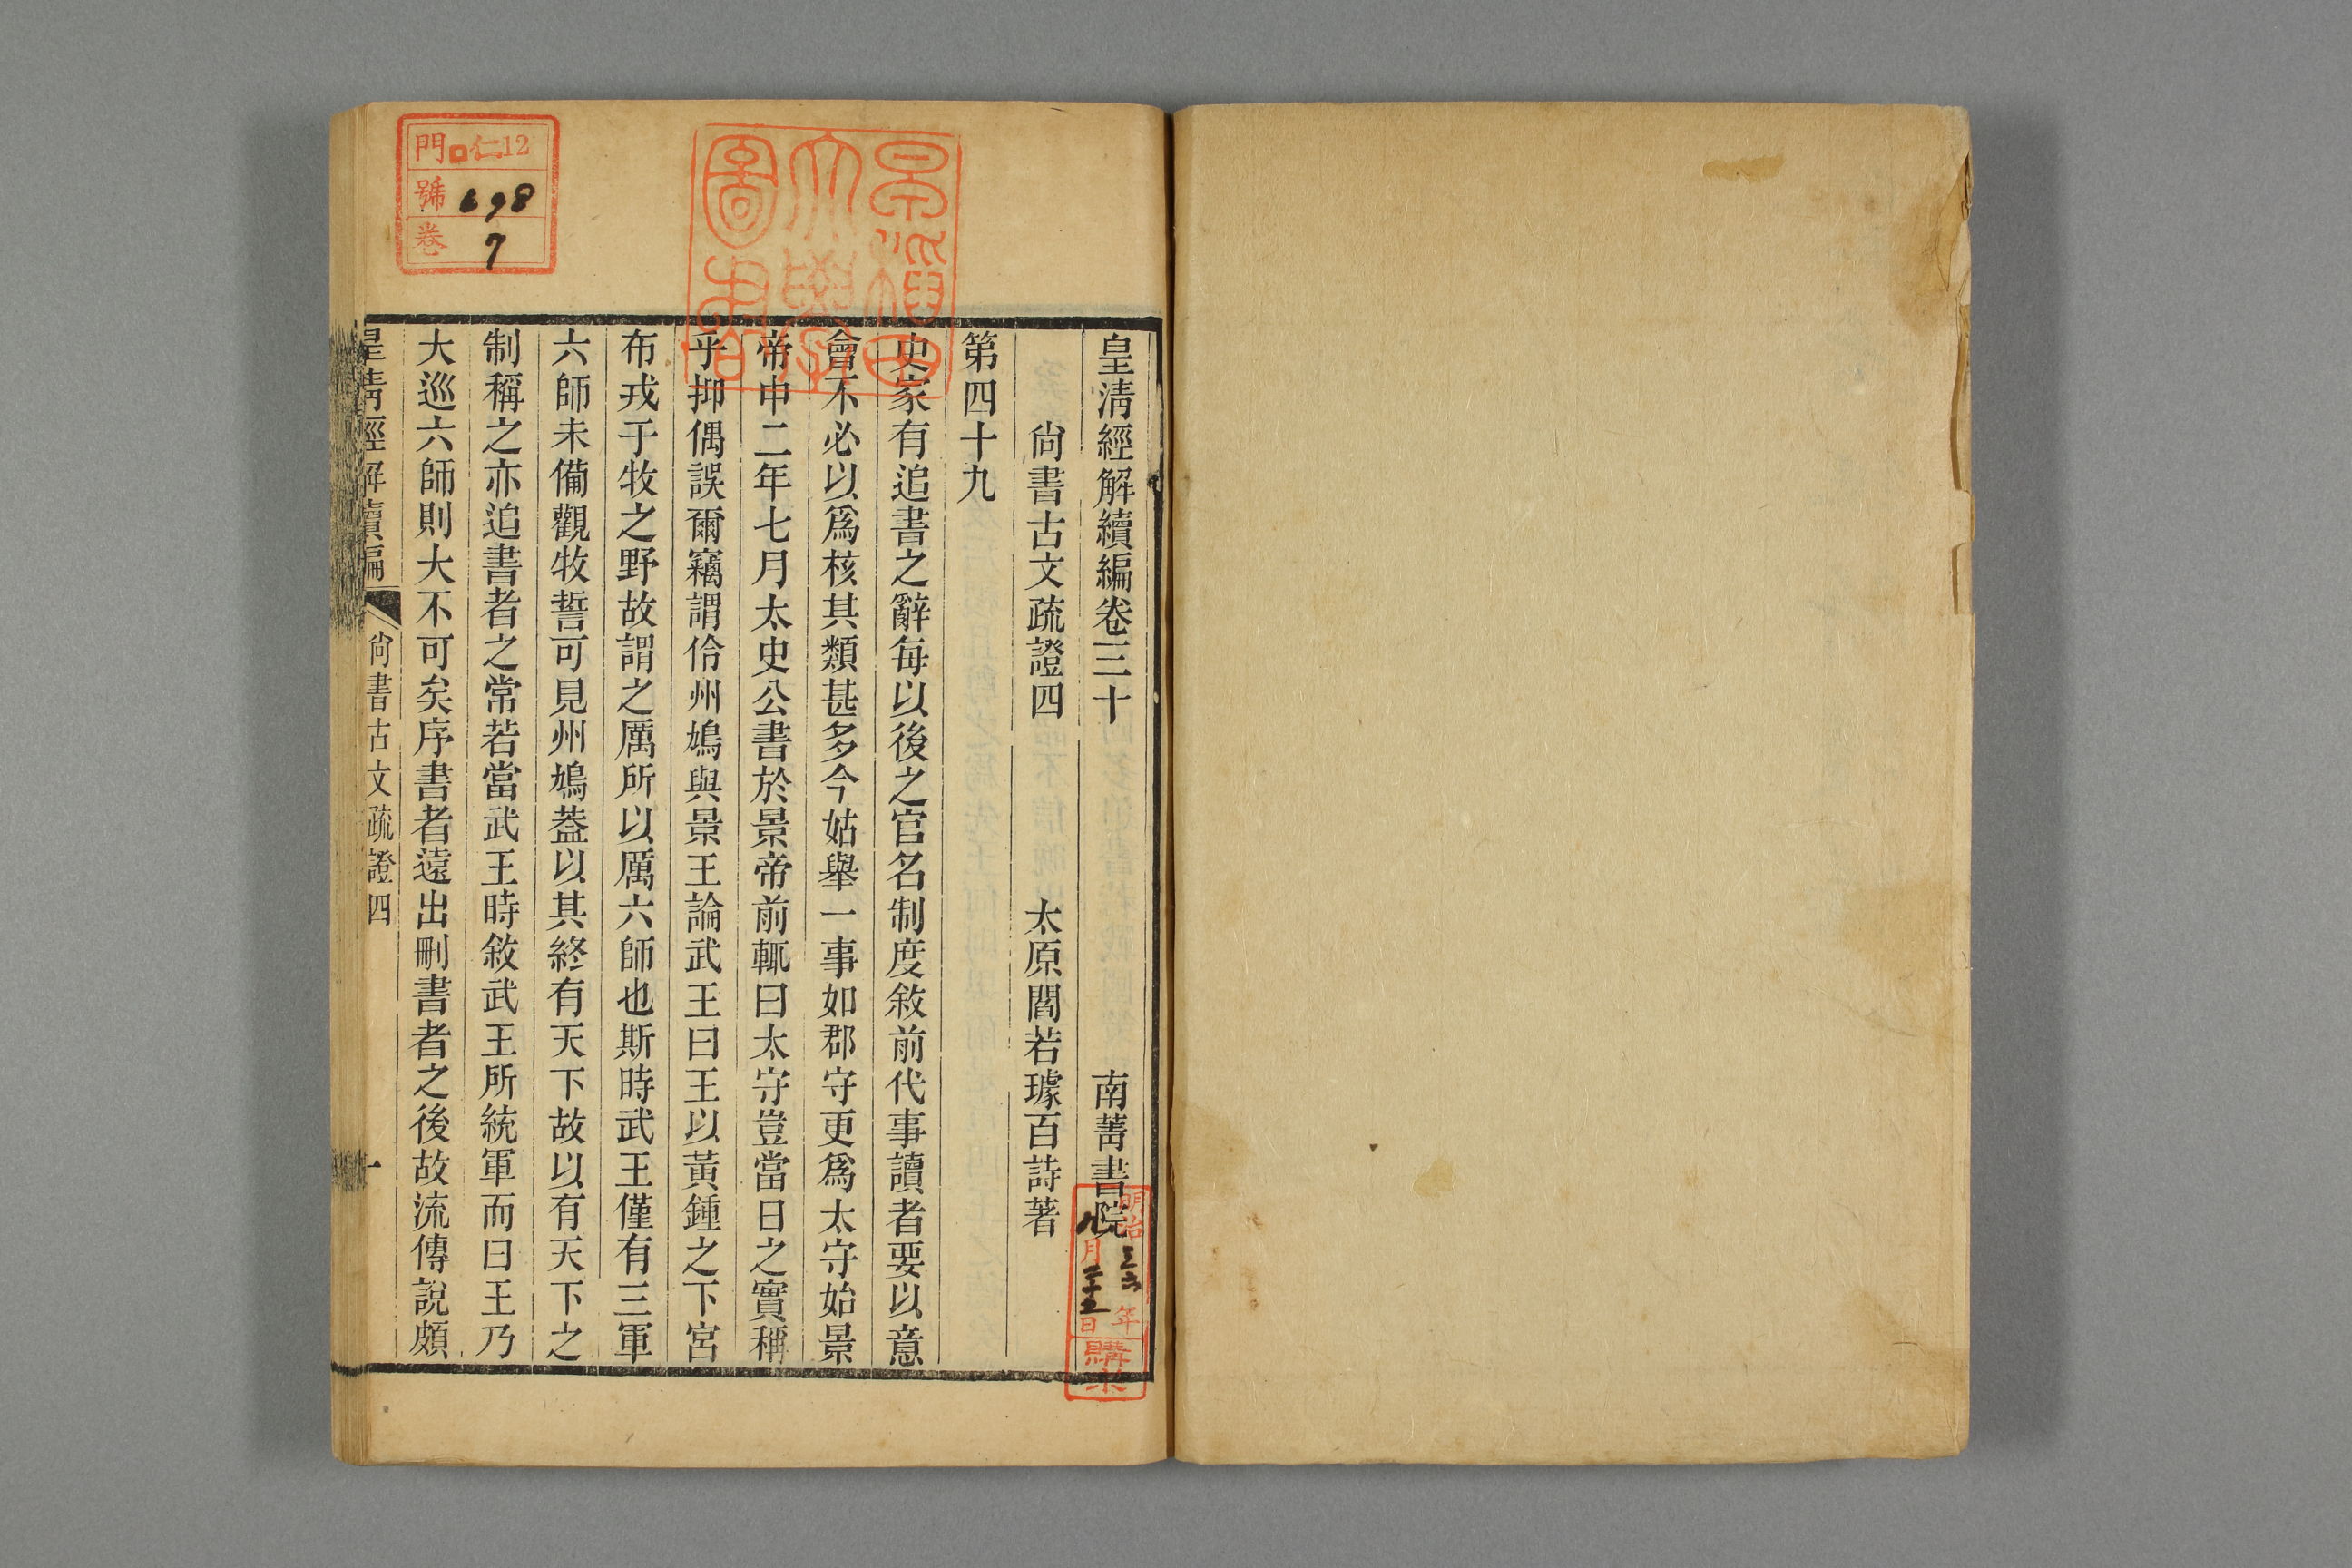 皇淸經解續編卷三十 南菁書院
尙書古文疏證四 太原閻若璩百詩著
第四十九
史家有追書之辭每以後之官名制度敘前代事讀者要以意
會不必以爲核其類甚多今姑舉一事如郡守更爲太守始景
帝中二年七月太史公書於景帝前輒曰太守豈當日之實稱
乎抑偶誤爾竊謂伶州鳩與景王論武王曰王以黃鍾之下宮
布戎于牧之野故謂之厲所以厲六師也斯時武王僅有三軍
六師未備觀牧誓可見州鳩蓋以其終有天下故以有天下之
制稱之亦追書者之常若當武王時敘武王所統軍而曰王乃
大巡六師則大不可矣序書者遠出刪書者之後故流傳說頗
皇淸經解續編 尙書古文疏證四 一
門 ロ仁12
號 698
卷 7
早稻田
大學
圖書
明治三六年
八月二十五日
購求